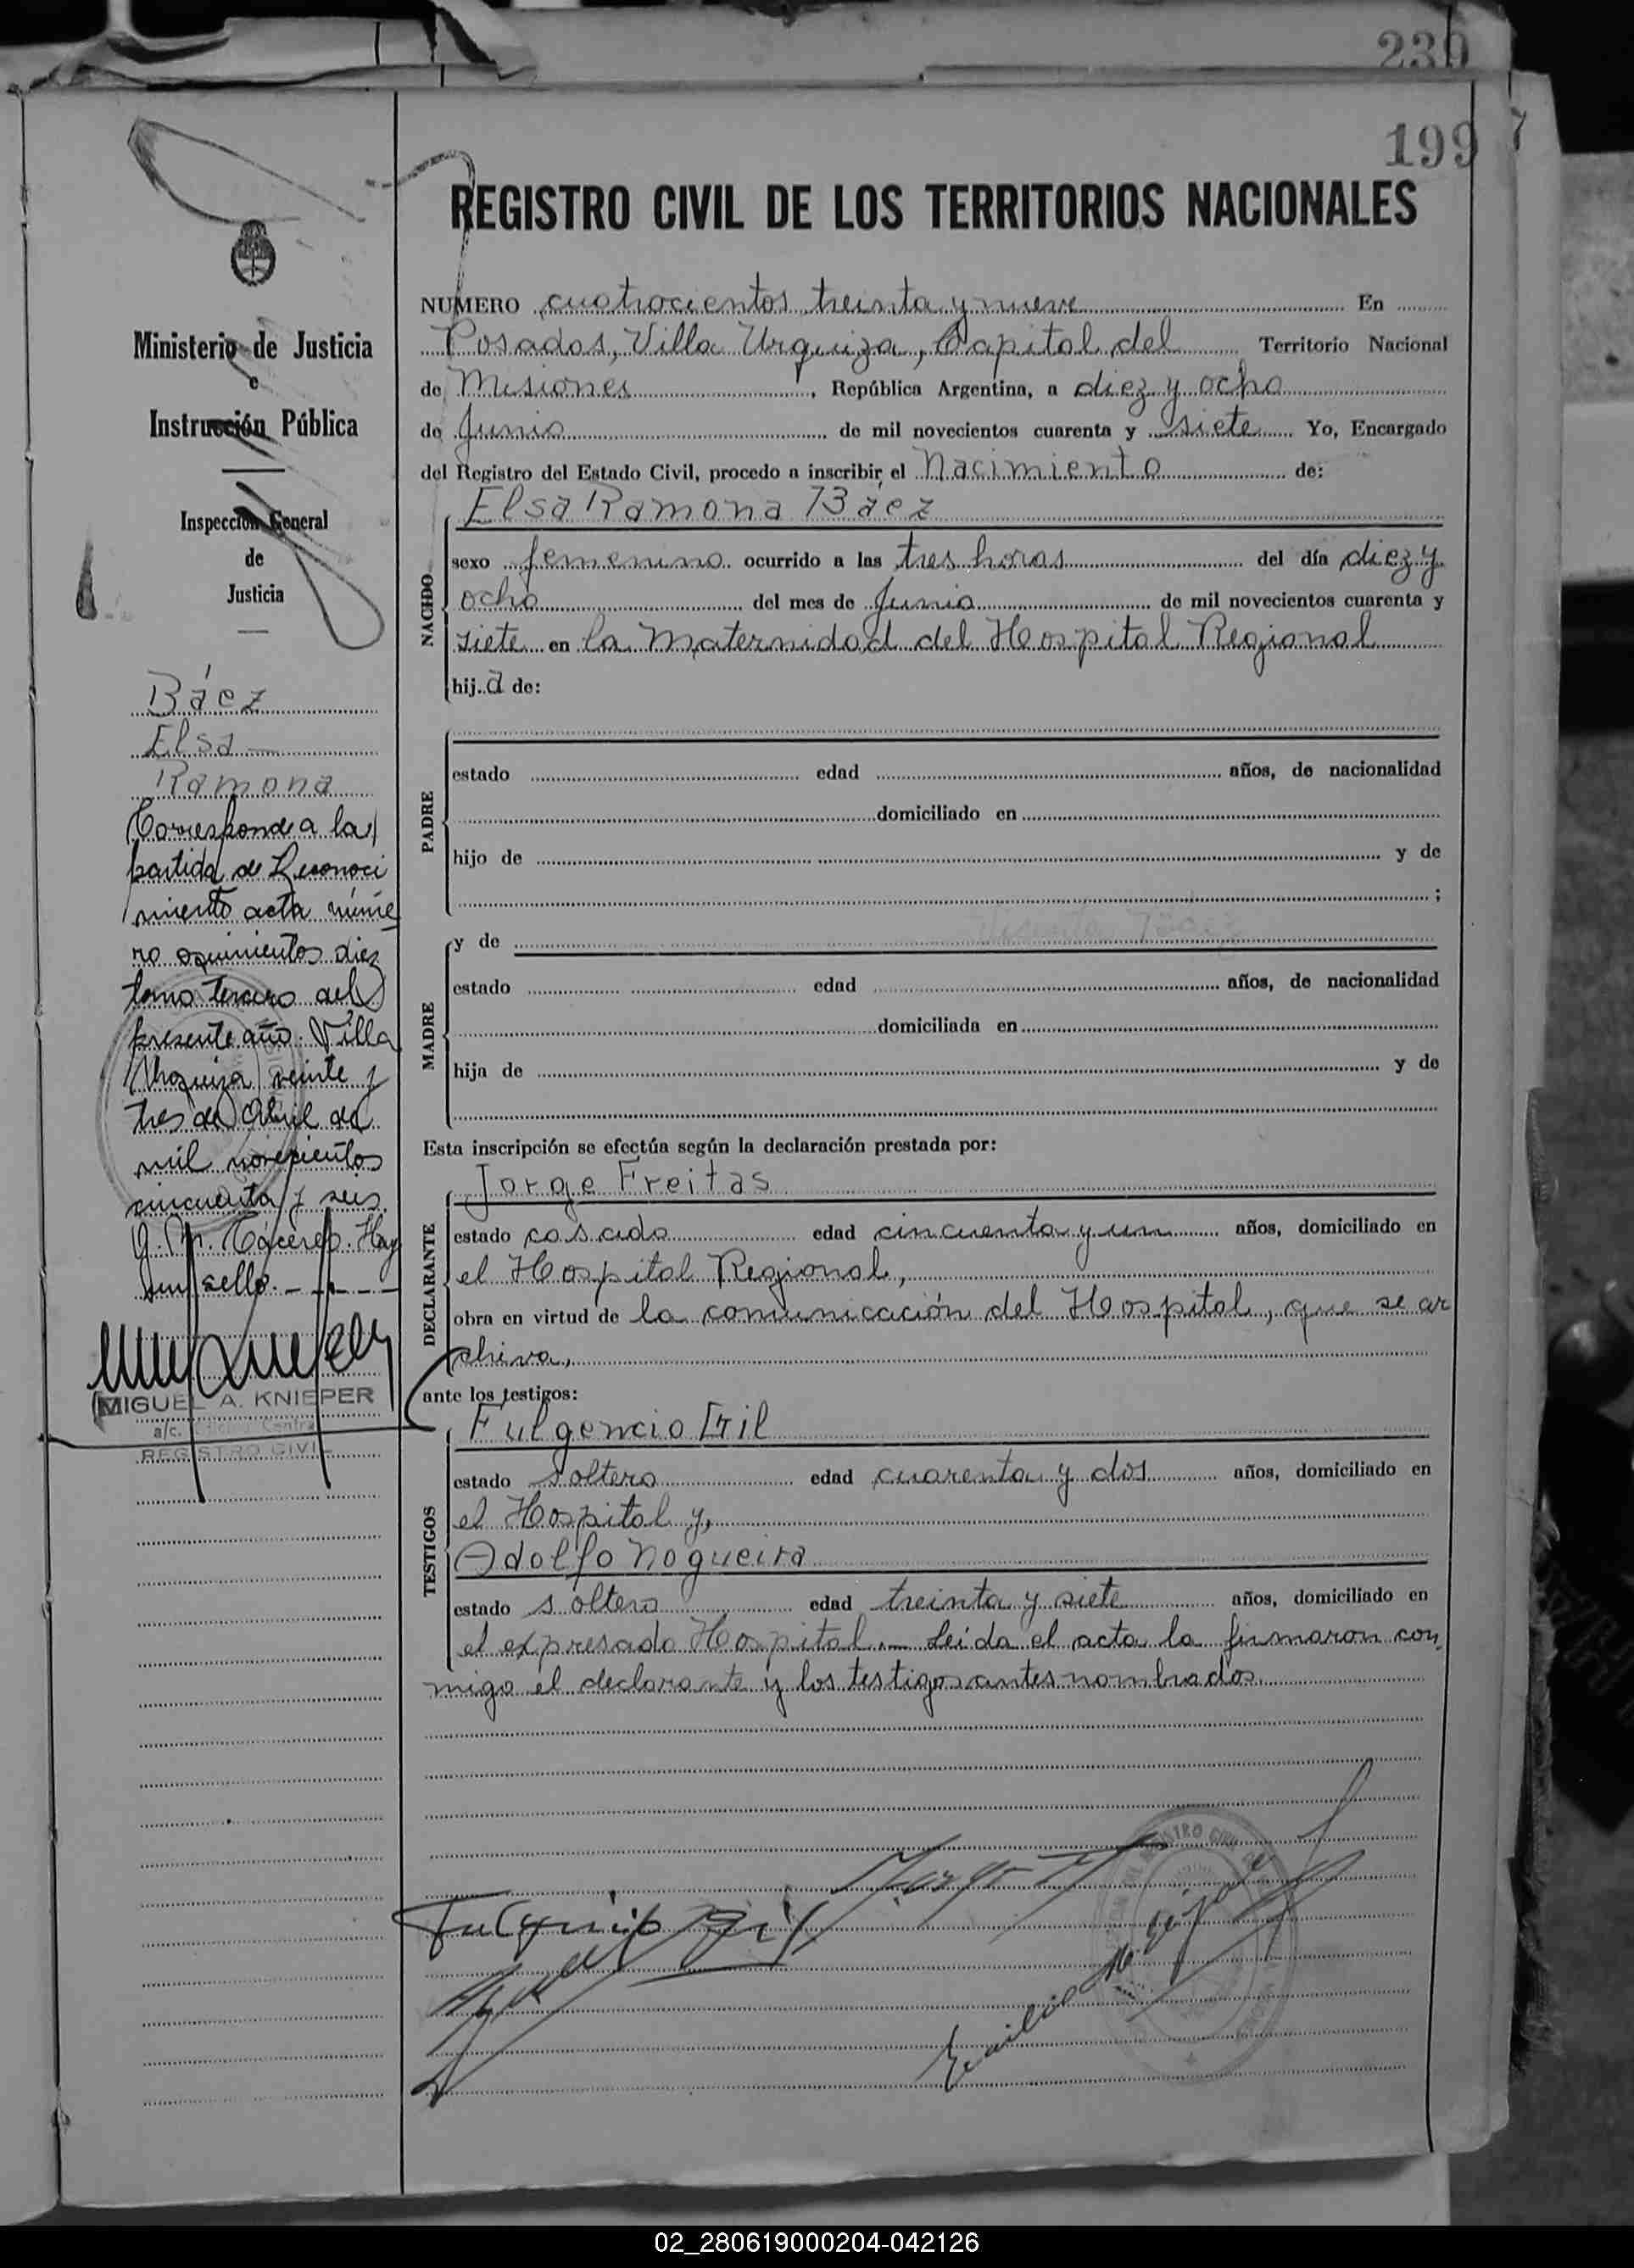 239
199
REGISTRO CIVIL DE LOS TERRITORIOS NACIONALES
Ministerio de Justicia
e
Instrucción Pública
Inspección General
de
Justicia
Báez
Elsa
Ramona
Corresponde a la
partida de Reconoci
miento acta núme
ro quinientos diez
tomo tercero del
presente año. Villa
Urquiza veinte y
tres de Abril de
mil novecientos
cincuenta y seis.
G. M. Cáceres. Hay
un sello.
MIGUEL A. KNIEPER
a/c. Oficina Central
REGISTRO CIVIL
NUMERO cuatrocientos treinta y nueve En
Posadas, Villa Urquiza, Capital del Territorio Nacional
de Misiones, República Argentina, a diez y ocho
de Junio de mil novecientos cuarenta y siete Yo, Encargado
del Registro del Estado Civil, procedo a inscribir el Nacimiento de:
NACIDO
Elsa Ramona Báez
sexo femenino ocurrido a las tres horas del día diez y
ocho del mes de Junio de mil novecientos cuarenta y
siete en la Maternidad del Hospital Regional
hija de:
PADRE
estado edad años, de nacionalidad
domiciliado en
hijo de y de
;
MADRE
y de Báez
estado edad años, de nacionalidad
domiciliada en
hija de y de
Esta inscripción se efectúa según la declaración prestada por:
DECLARANTE
Jorge Freitas
estado casado edad cincuenta y un años, domiciliado en
el Hospital Regional,
obra en virtud de la comunicación del Hospital, que se ar
chiva,
ante los testigos:
TESTIGOS
Fulgencio Gil
estado soltero edad cuarenta y dos años, domiciliado en
el Hospital y,
Adolfo Nogueira
estado soltero edad treinta y siete años, domiciliado en
el expresado Hospital.— Leída el acta la firmaron con
migo el declarante y los testigos antes nombrados.
Fulgencio Gil
02_280619000204-042126